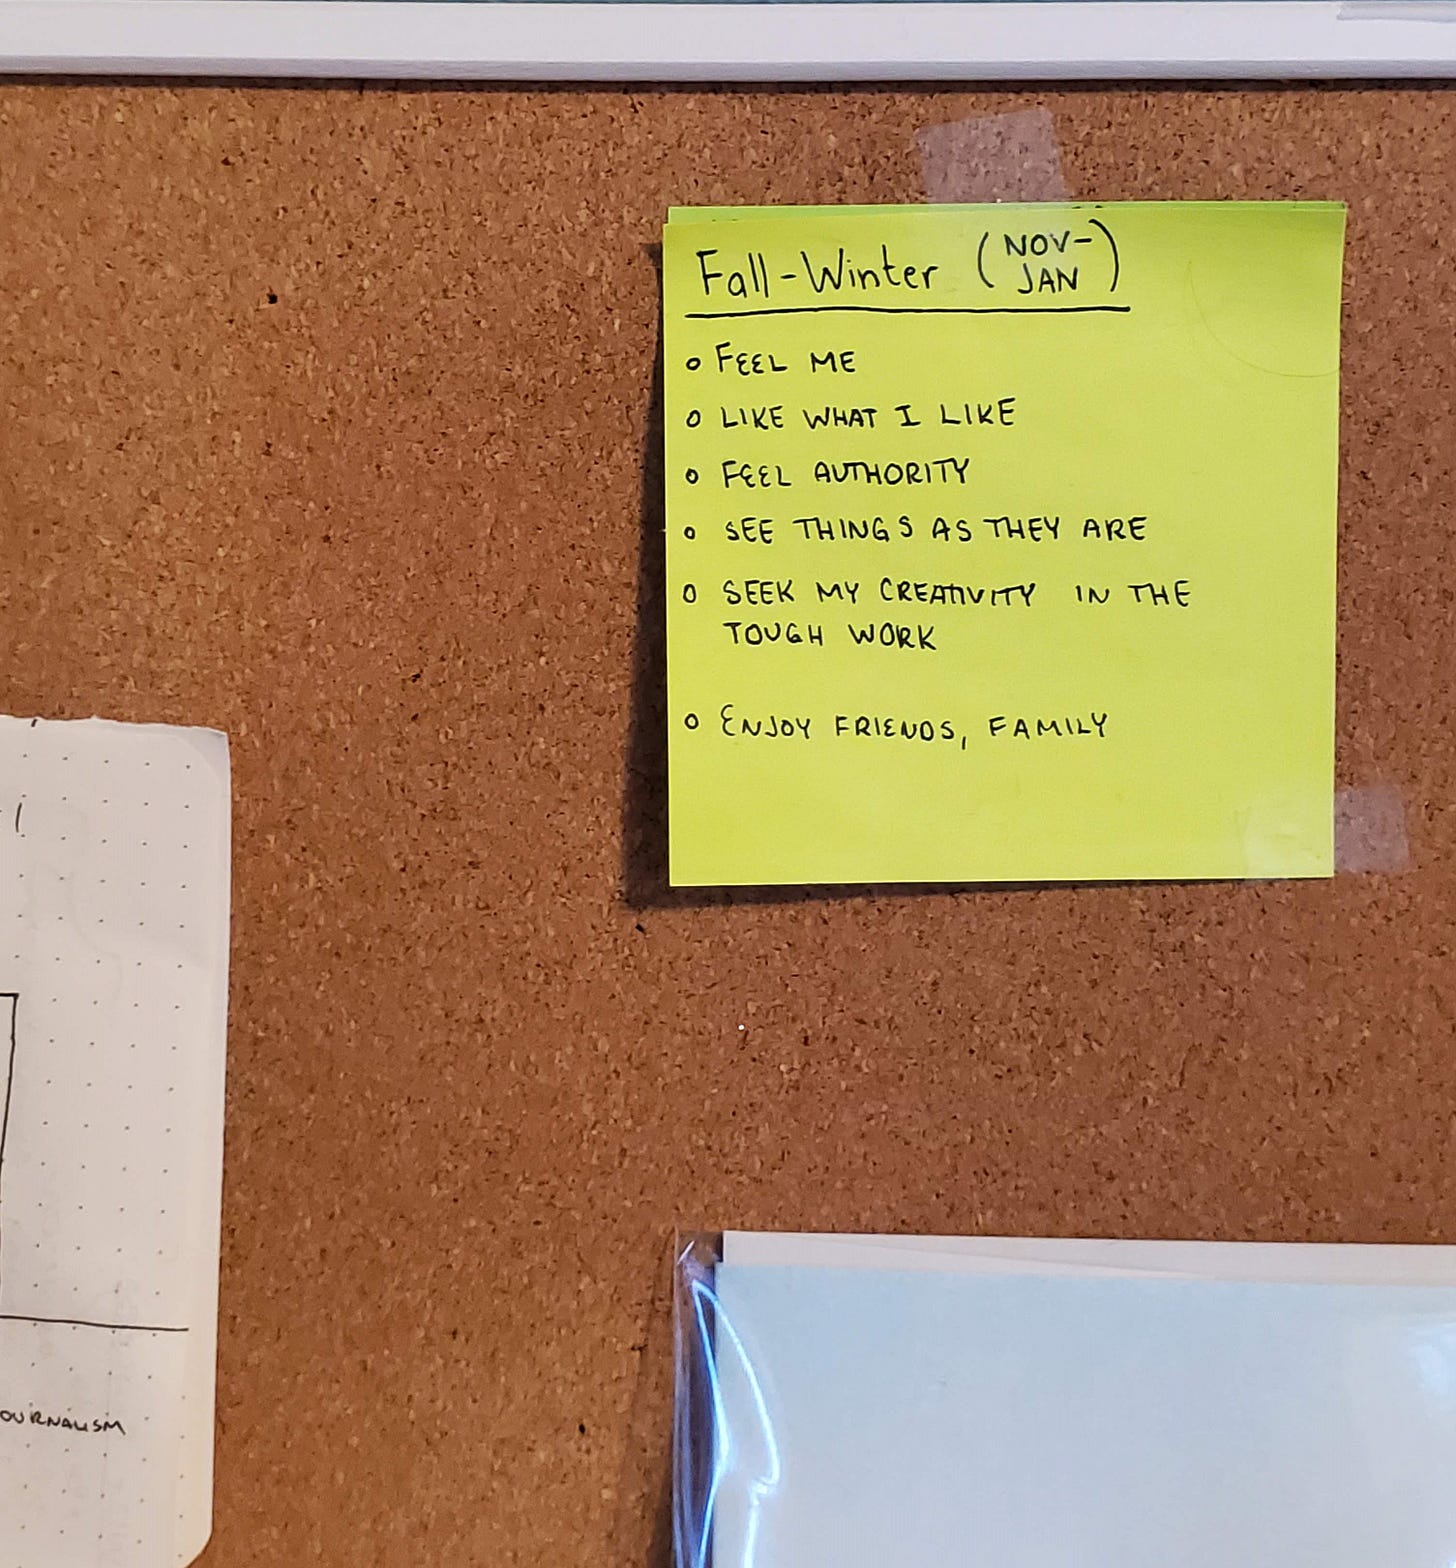 Fall-Winter (NOV-
JAN)
o FEEL ME
o LIKE WHAT I LIKE
o FEEL AUTHORITY
o SEE THINGS AS THEY ARE
o SEEK MY CREATIVITY IN THE
TOUGH WORK
o ENJOY FRIENDS, FAMILY
OURNALISM